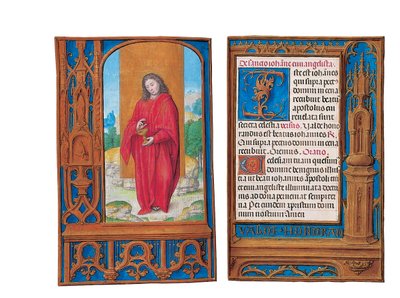 De sancto iohanne euangelista
Iste est iohannes
qui supra pect
domini in cena
recubuit beatus
apostolus cui
reuelata sunt
secreta celestia versus Valde hono
randus est beatus iohannes R
Qui supra pectus domini in cena
recubuit. Oremus. Oratio.
Ecclesiam tuam quesumus
domine benignus illustra
ut beati iohannis apostoli
euangeliste illuminata doctrinis
ad dona perueniat sempiterna
Per eundem christum dominum
nostrum Amen
VALDE HONORAN